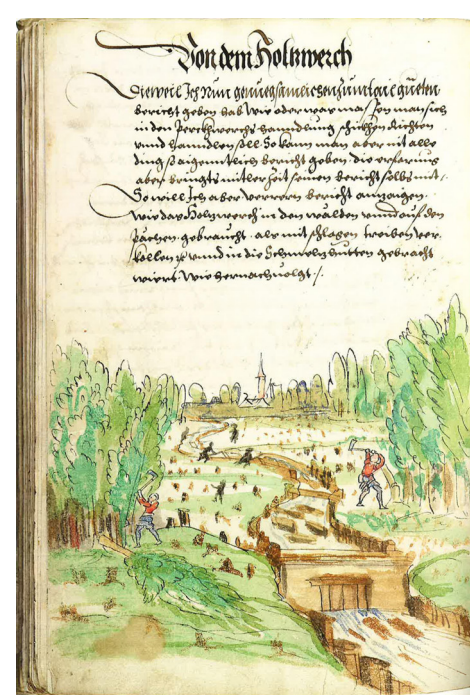 Von dem Holtzwerch
Dieweil Ich Nun genuegsamlichen zum tail gueten
bericht geben hab wie oder was massen man sich
in den Perckwerchs hanndlung schickhen Richten
vnnd hanndlen soll So kann man aber nit alle
ding so aigenntlich bericht geben die erfarnus
aber bringts mitler Zeit seinen bericht selbs mit
So will Ich aber verrern bericht anzaigen
wie das Holzwerch in den wälden vnnd auf den
pächen gebraucht als mit schlagen treiben ver
kollen vnnd in die Schmelzhütten gebracht
wiert wie hernach uolgt /.